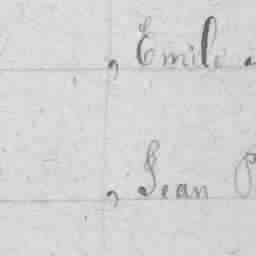 , Emile
, Jean